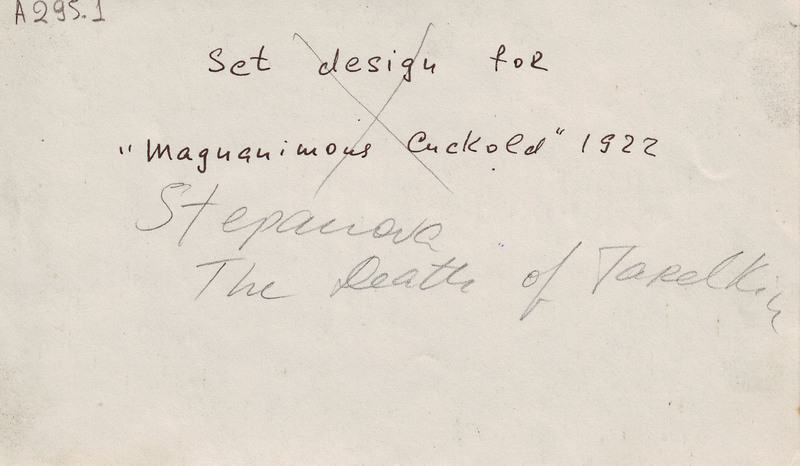 A295.1
Set design for
"Magnanimous Cuckold" 1922
Stepanova
The Death of Tarelkin